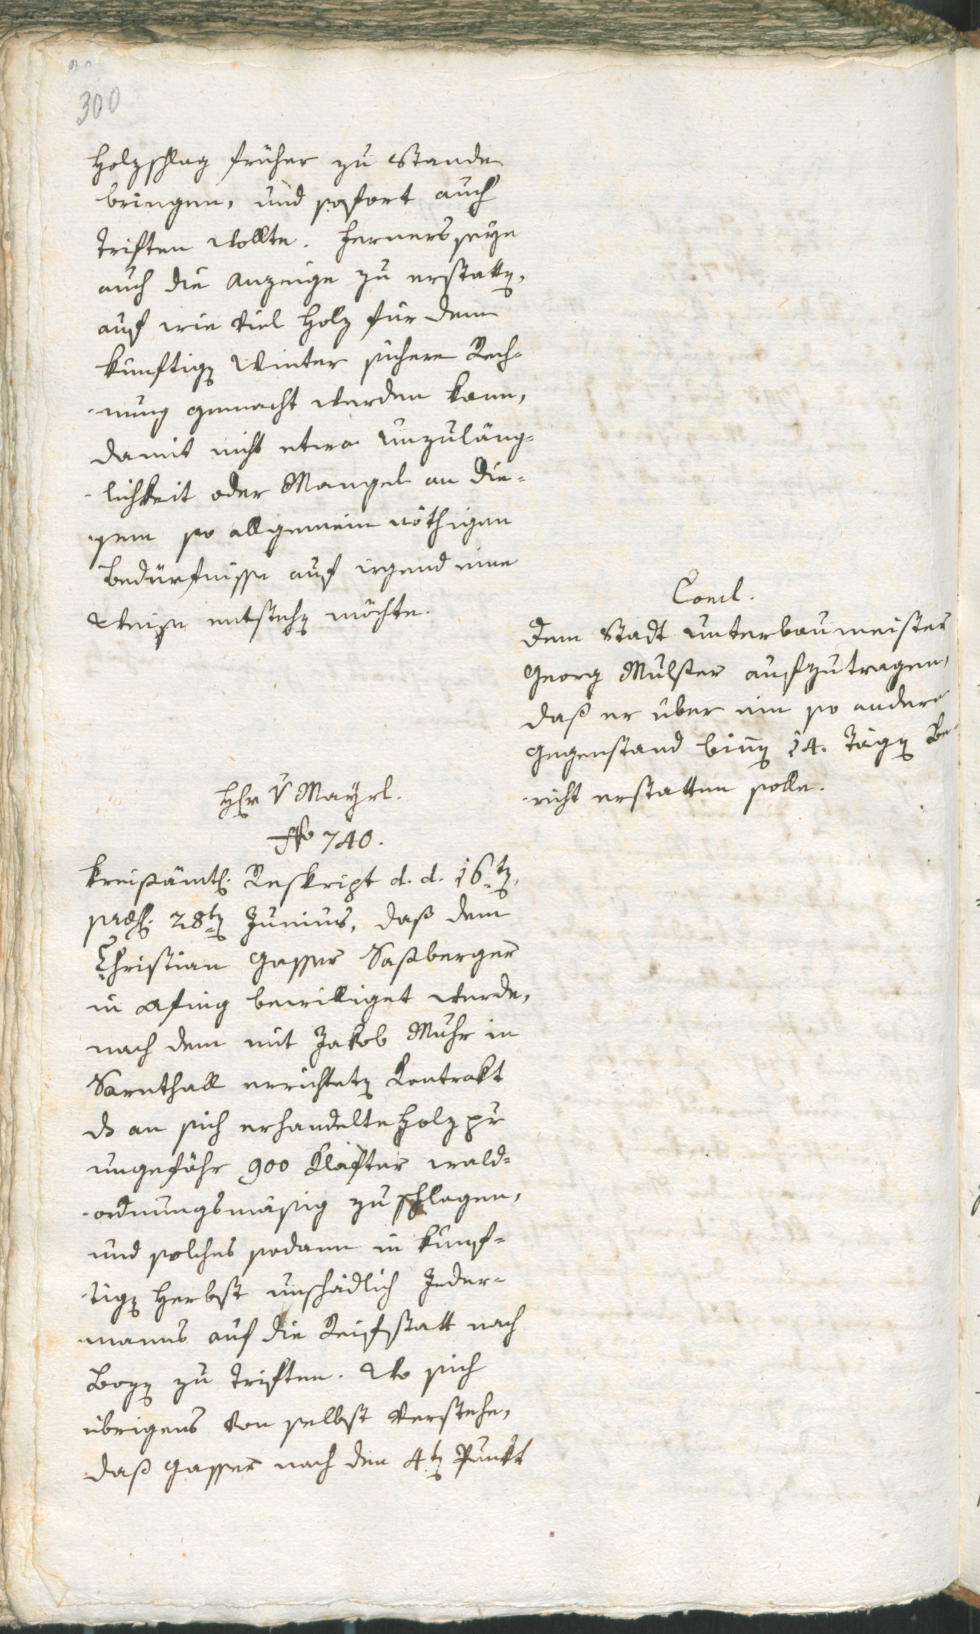 300
Holzschlag früher zu Stande
bringen, und sofort auch
triften wollte. Ferners seye
auch die Anzeige zu erstatten,
auf wie viel Holz für dem
künftigen Winter sichere Rech-
nung gemacht werden kann,
damit nicht etwa Unzuläng-
lichkeit oder Mangel an die-
sem so allgemein nöthigen
Bedürfnisse auf irgend eine
Weise entstehen möchte.
Concl.
Dem Stadt Unterbaumeister
Georg Mulser aufzutragen,
daß er über ein so andern
Gegenstand binnen 14. Tägen Be-
richt erstatten solle.
Hr v Mayrl.
No 740.
Kreißämtl. Reskript d. d. 16ten,
præs. 28ten Junius, daß dem
Christian Gasser Saßberger
in Afing bewilliget werde,
nach dem mit Jakob Muhr in
Sarnthall errichteten Kontrakt
ds an sich erhandelte Holz pr
ungefähr 900 Klafter wald-
ordnungsmäsig zu schlagen,
und solches sodann in künf-
tigen Herbst unschädlich Jeder-
manns auf die Reifstatt nach
Bozen zu triften. Wo sich
übrigens von selbst verstehe,
daß Gasser nach den 4ten Punkt